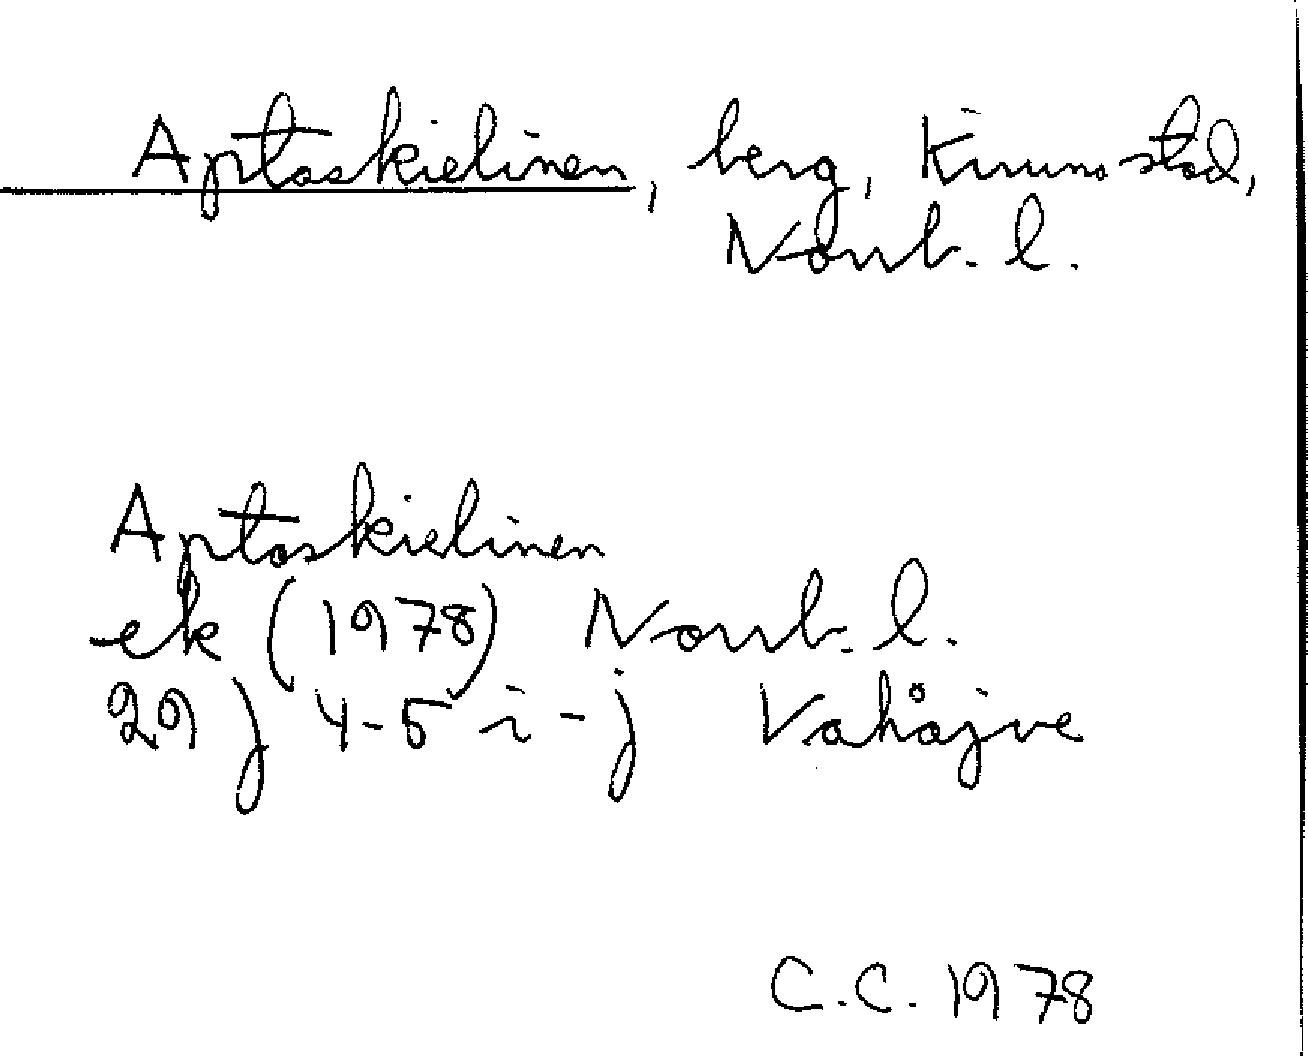 Aptaskielinen, berg, Kiruna stad,
Norrb. l.
Aptaskielinen
ek (1978) Norrb. l.
29 J 4-5 i-j Vahåive
C.C. 1978